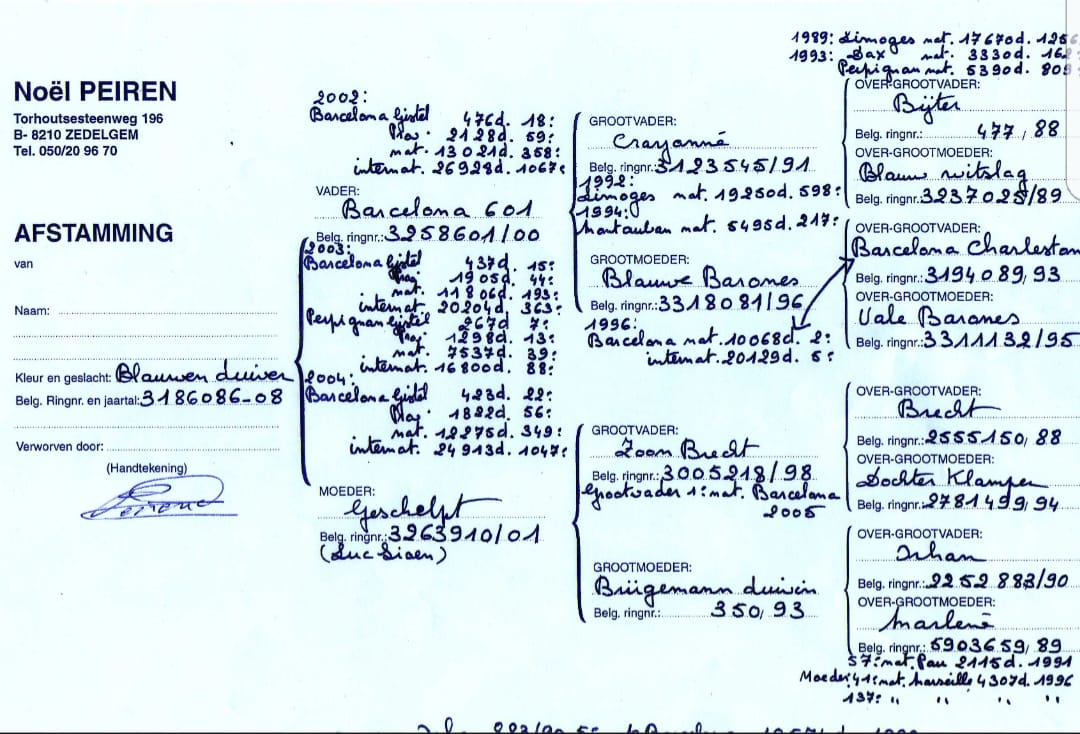 Noël PEIREN
Torhoutsesteenweg 196
B- 8210 ZEDELGEM
Tel. 050/20 96 70
AFSTAMMING
van
Naam:
Kleur en geslacht: Blauwen duiver
Belg. Ringnr. en jaartal: 3186086-08
Verworven door:
(Handtekening)
2002:
Barcelona Gistel 476d. 18:
2128d. 59:
nat. 13021d. 358:
internat. 26928d. 1067:
VADER:
Barcelona 601
Belg. ringnr.: 3258601/00
2003:
Barcelona Gistel 437d. 15:
1905d. 44:
nat. 11806d. 193:
internat. 20204d. 363:
Perpignan Gistel 267d 7:
1298d. 13:
nat. 7537d. 39:
internat. 16800d. 88:
2004:
Barcelona Gistel 423d. 22:
1822d. 56:
nat. 12275d. 349:
internat. 24913d. 1047:
MOEDER:
Geschelpt
Belg. ringnr.: 3263910/01
(Luc Sioen)
GROOTVADER:
Crayonné
Belg. ringnr.: 3123545/91
1992:
Limoges nat. 19250d. 598:
1994:
Montauban nat. 5495d. 217:
GROOTMOEDER:
Blauwe Barones
Belg. ringnr.: 3318081/96
1996:
Barcelona nat. 10068d. 2:
internat. 20129d. 5:
GROOTVADER:
Zoon Brecht
Belg. ringnr.: 3005218/98
Grootvader 1: nat. Barcelona
2005
GROOTMOEDER:
Brügemann duivin
Belg. ringnr.: 350, 93
1989: Limoges nat. 17670d. 1256
1993: Dax nat. 3330d. 162:
Perpignan nat. 5390d. 809
OVER-GROOTVADER:
Bijter
Belg. ringnr.: 477, 88
OVER-GROOTMOEDER:
Blauw witslag
Belg. ringnr.: 3237025/89
OVER-GROOTVADER:
Barcelona Charleston
Belg. ringnr.: 3194089, 93
OVER-GROOTMOEDER:
Vale Barones
Belg. ringnr.: 3311132/95
OVER-GROOTVADER:
Brecht
Belg. ringnr.: 2555150, 88
OVER-GROOTMOEDER:
Dochter Klamper
Belg. ringnr.: 2781499, 94
OVER-GROOTVADER:
Orhan
Belg. ringnr.: 2252883/90
OVER-GROOTMOEDER:
Marlenè
Belg. ringnr.: 5903659, 89
57: nat. Pau 2115d. 1991
Moeder: 41: nat. Marseille 4307d. 1996
137: " " " "